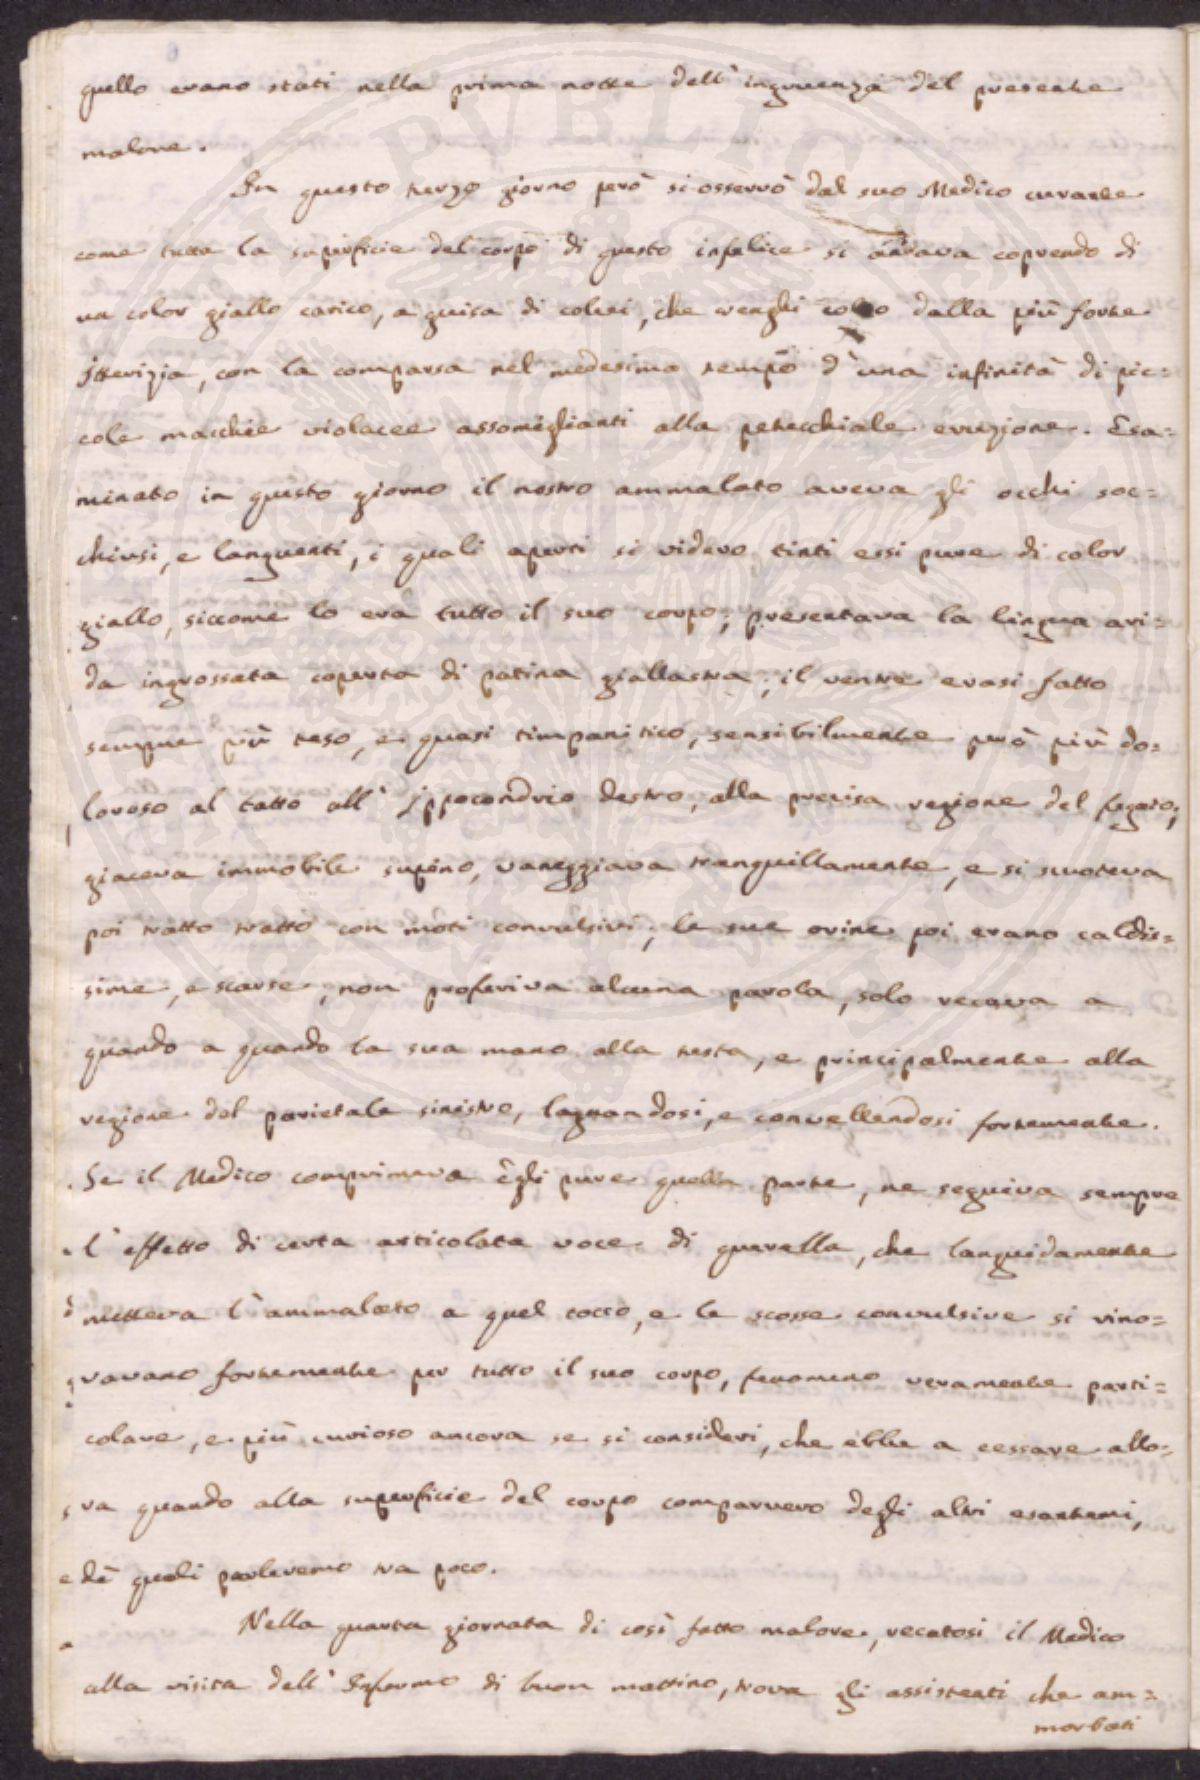 quello erano stati nella prima notte dell'ingruenza del presente
malore.
In questo terzo giorno però si osservò dal suo Medico curante
come tutta la superficie del corpo di questo infelice si andava coprendo di
un color giallo carico, a guisa di colui, che venghi colto dalla più forte
Itterizia, con la comparsa nel medesimo tempo d'una infinità di pic=
cole macchie violacee assomiglianti alla petecchiale eruzione. Esa=
minato in questo giorno il nostro ammalato aveva gli occhi soc=
chiusi, e languenti, i quali aperti si videro tinti essi pure di color
giallo, siccome lo era tutto il suo corpo; presentava la lingua ari=
da ingrossata coperta di patina giallastra; il ventre erasi fatto
sempre più teso, e quasi timpanitico, sensibilmente però più do=
loroso al tatto all'Ippocondrio destro, alla precisa regione del fegato;
giaceva immobile supino, vaneggiava tranquillamente, e si scuoteva
poi tratto tratto con moti convulsivi; le sue orine poi erano caldis=
sime, e scarse, non proferiva alcuna parola, solo recava a
quando a quando la sua mano alla testa, e principalmente alla
regione del parietale sinistro, lagnandosi, e convellendosi fortemente.
Se il Medico comprimeva egli pure quella parte, ne seguiva sempre
l'effetto di certa articolata voce di querella, che languidamente
metteva l'ammalato a quel tocco, e le scosse convulsive si rino=
vavano fortemente per tutto il suo corpo, fenomeno veramente parti=
colare, e più curioso ancora se si consideri, che ebbe a cessare allo=
ra quando alla superficie del corpo comparvero degli altri esantemi,
dè quali parleremo tra poco.
Nella quarta giornata di così fatto malore, recatosi il Medico
alla visita dell'Infermo di buon mattino, trova gli assistenti che am=
morbati